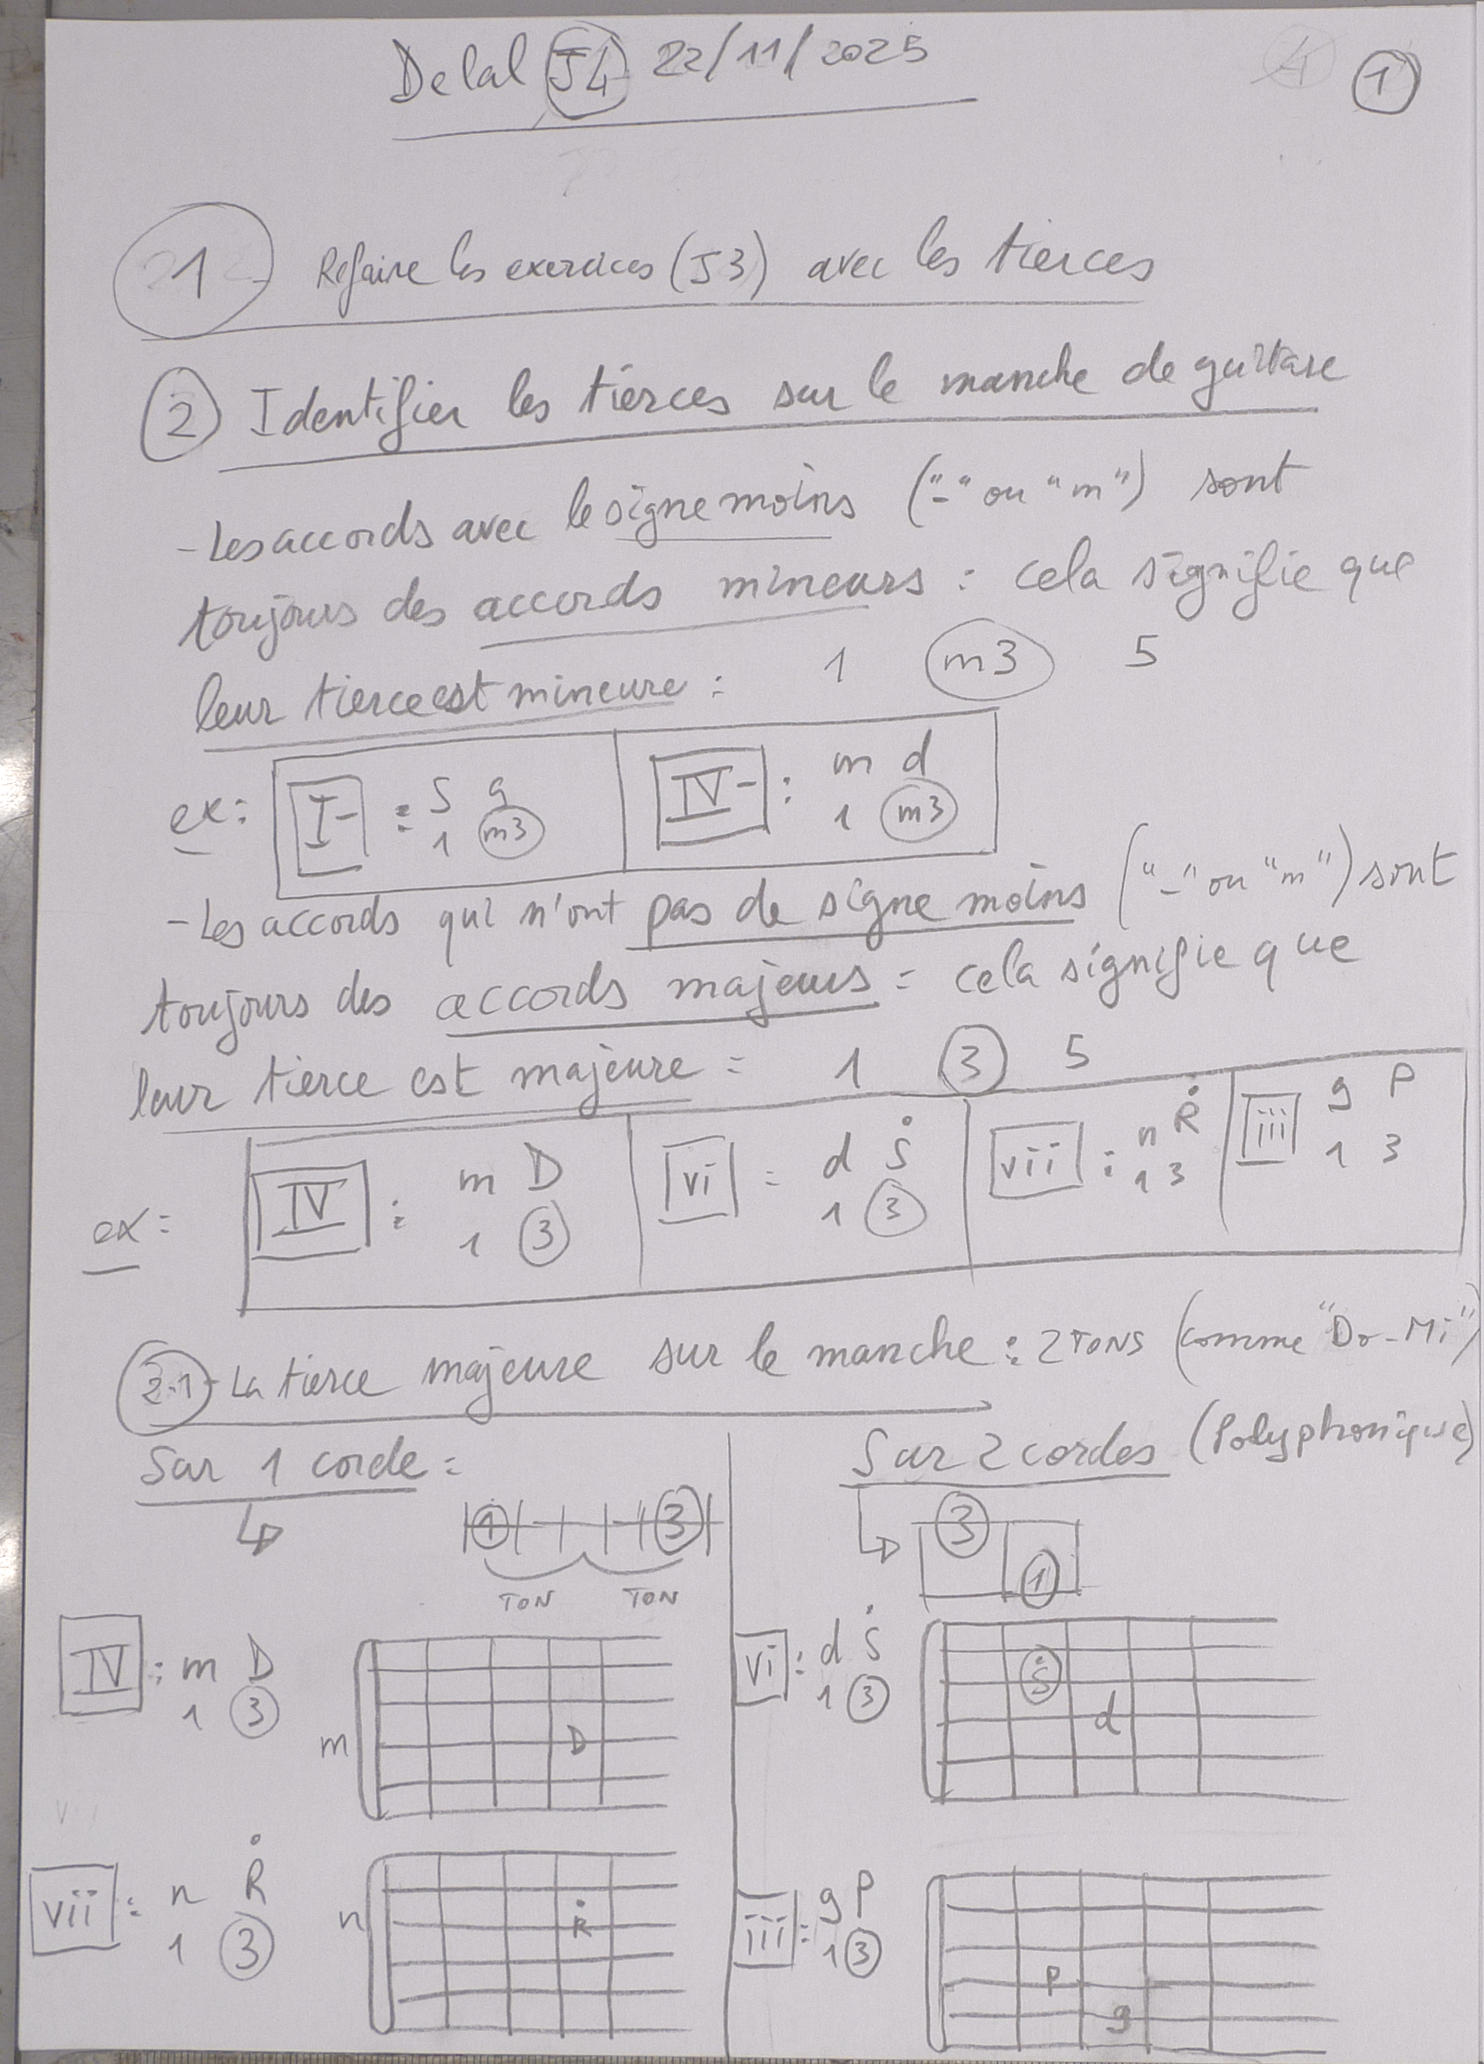 Delal J4 22/11/2025
1
1 Refaire les exercices (J3) avec les tierces
2 Identifier les tierces sur le manche de guitare
- Les accords avec le signe moins ("-" ou "m") sont
toujours des accords mineurs : cela signifie que
leur tierce est mineure : 1 m3 5
ex: I- : S g IV- : m d
1 m3 1 m3
- Les accords qui n'ont pas de signe moins ("-" ou "m") sont
toujours des accords majeurs = cela signifie que
leur tierce est majeure = 1 3 5
ex: IV : m D vi = d Ṡ vii : n Ṙ iii g P
1 3 1 3 1 3 1 3
2.1 - La tierce majeure sur le manche : 2 TONS (comme "Do-Mi")
Sur 1 corde =
1 3
TON TON
IV : m D
1 3
m D
vii : n Ṙ
1 3
n Ṙ
Sur 2 cordes (Polyphonique)
3
1
vi : d Ṡ
1 3
Ṡ
d
iii : g P
1 3
P
g